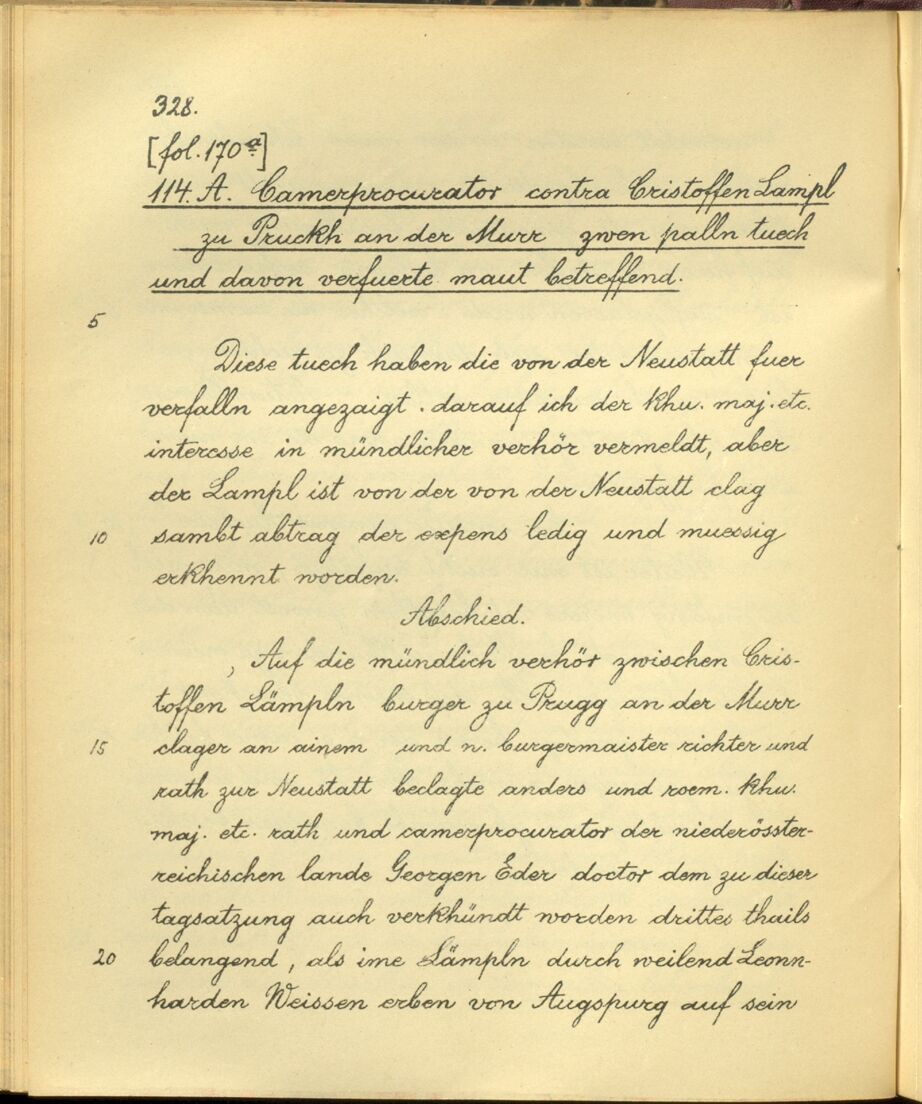 328.
[fol. 170a]
114. A. Camerprocurator contra Cristoffen Lampl
zu Pruckh an der Murr zwen palln tuech
und davon verfuerte maut betreffend.
5
Diese tuech haben die von der Neustatt fuer
verfalln angezaigt. darauf ich der khu. maj. etc.
interesse in mündlicher verhör vermeldt, aber
der Lampl ist von der von der Neustatt clag
10 sambt abtrag der expens ledig und muessig
erkhennt worden.
Abschied.
, Auf die mündlich verhör zwischen Cris-
toffen Lämpln burger zu Prugg an der Murr
15 clager an ainem und n. burgermaister richter und
rath zur Neustatt beclagte anders und roem. khu.
maj. etc. rath und camerprocurator der niederösster-
reichischen lande Georgen Eder doctor dem zu dieser
tagsatzung auch verkhündt worden drittes thails
20 belangend, als ime Lämpln durch weilend Leonn-
harden Weissen erben von Augspurg auf sein